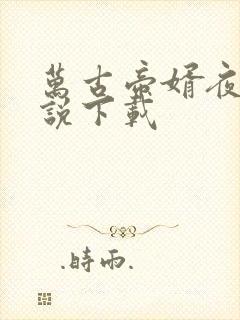 萬古帝婿夜
說下載
.時雨.